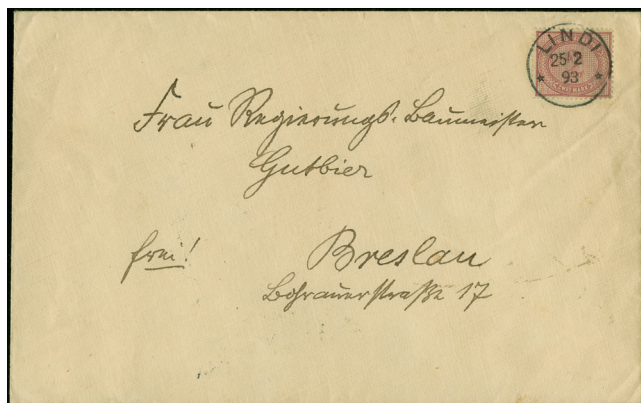 LINDI
25 2
93
Frau Regierungs-Baumeister
Gutbier
frei!
Breslau
Bohrauerstraße 17